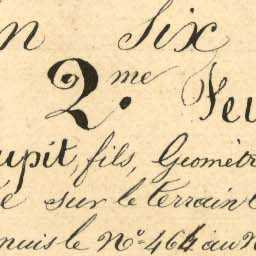 en Six
2.me Feu
upit, fils, Géomètr
é sur le terrain
nuis le No. 464 au N